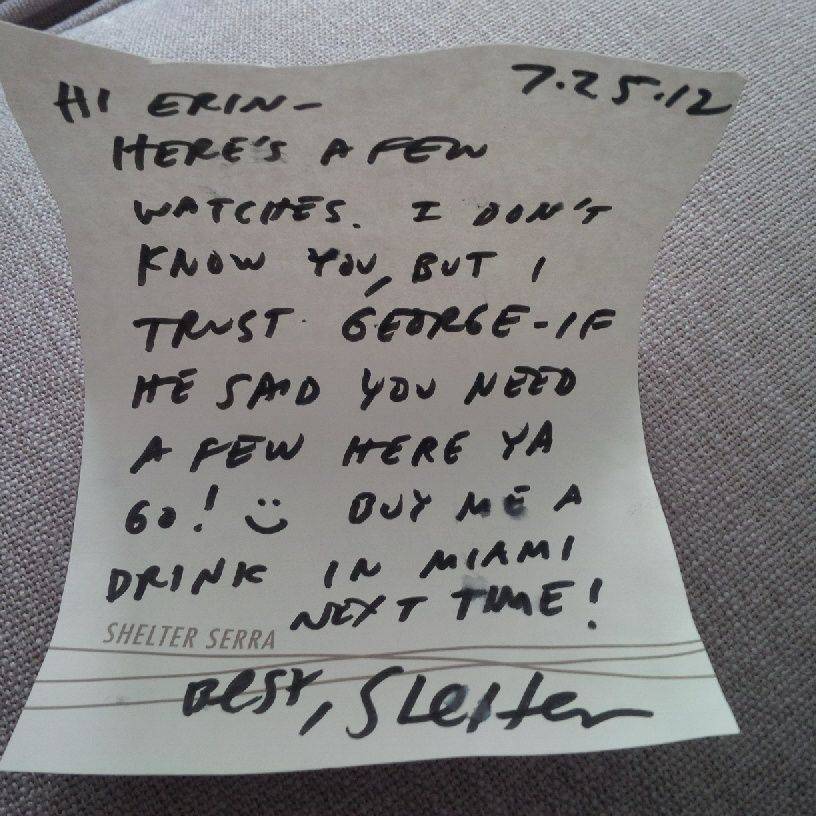 7.25.12
HI ERIN-
HERE'S A FEW
WATCHES. I DON'T
KNOW YOU, BUT I
TRUST GEORGE-IF
HE SAID YOU NEED
A FEW HERE YA
GO! Ü BUY ME A
DRINK IN MIAMI
NEXT TIME!
SHELTER SERRA
BEST, SHELTER